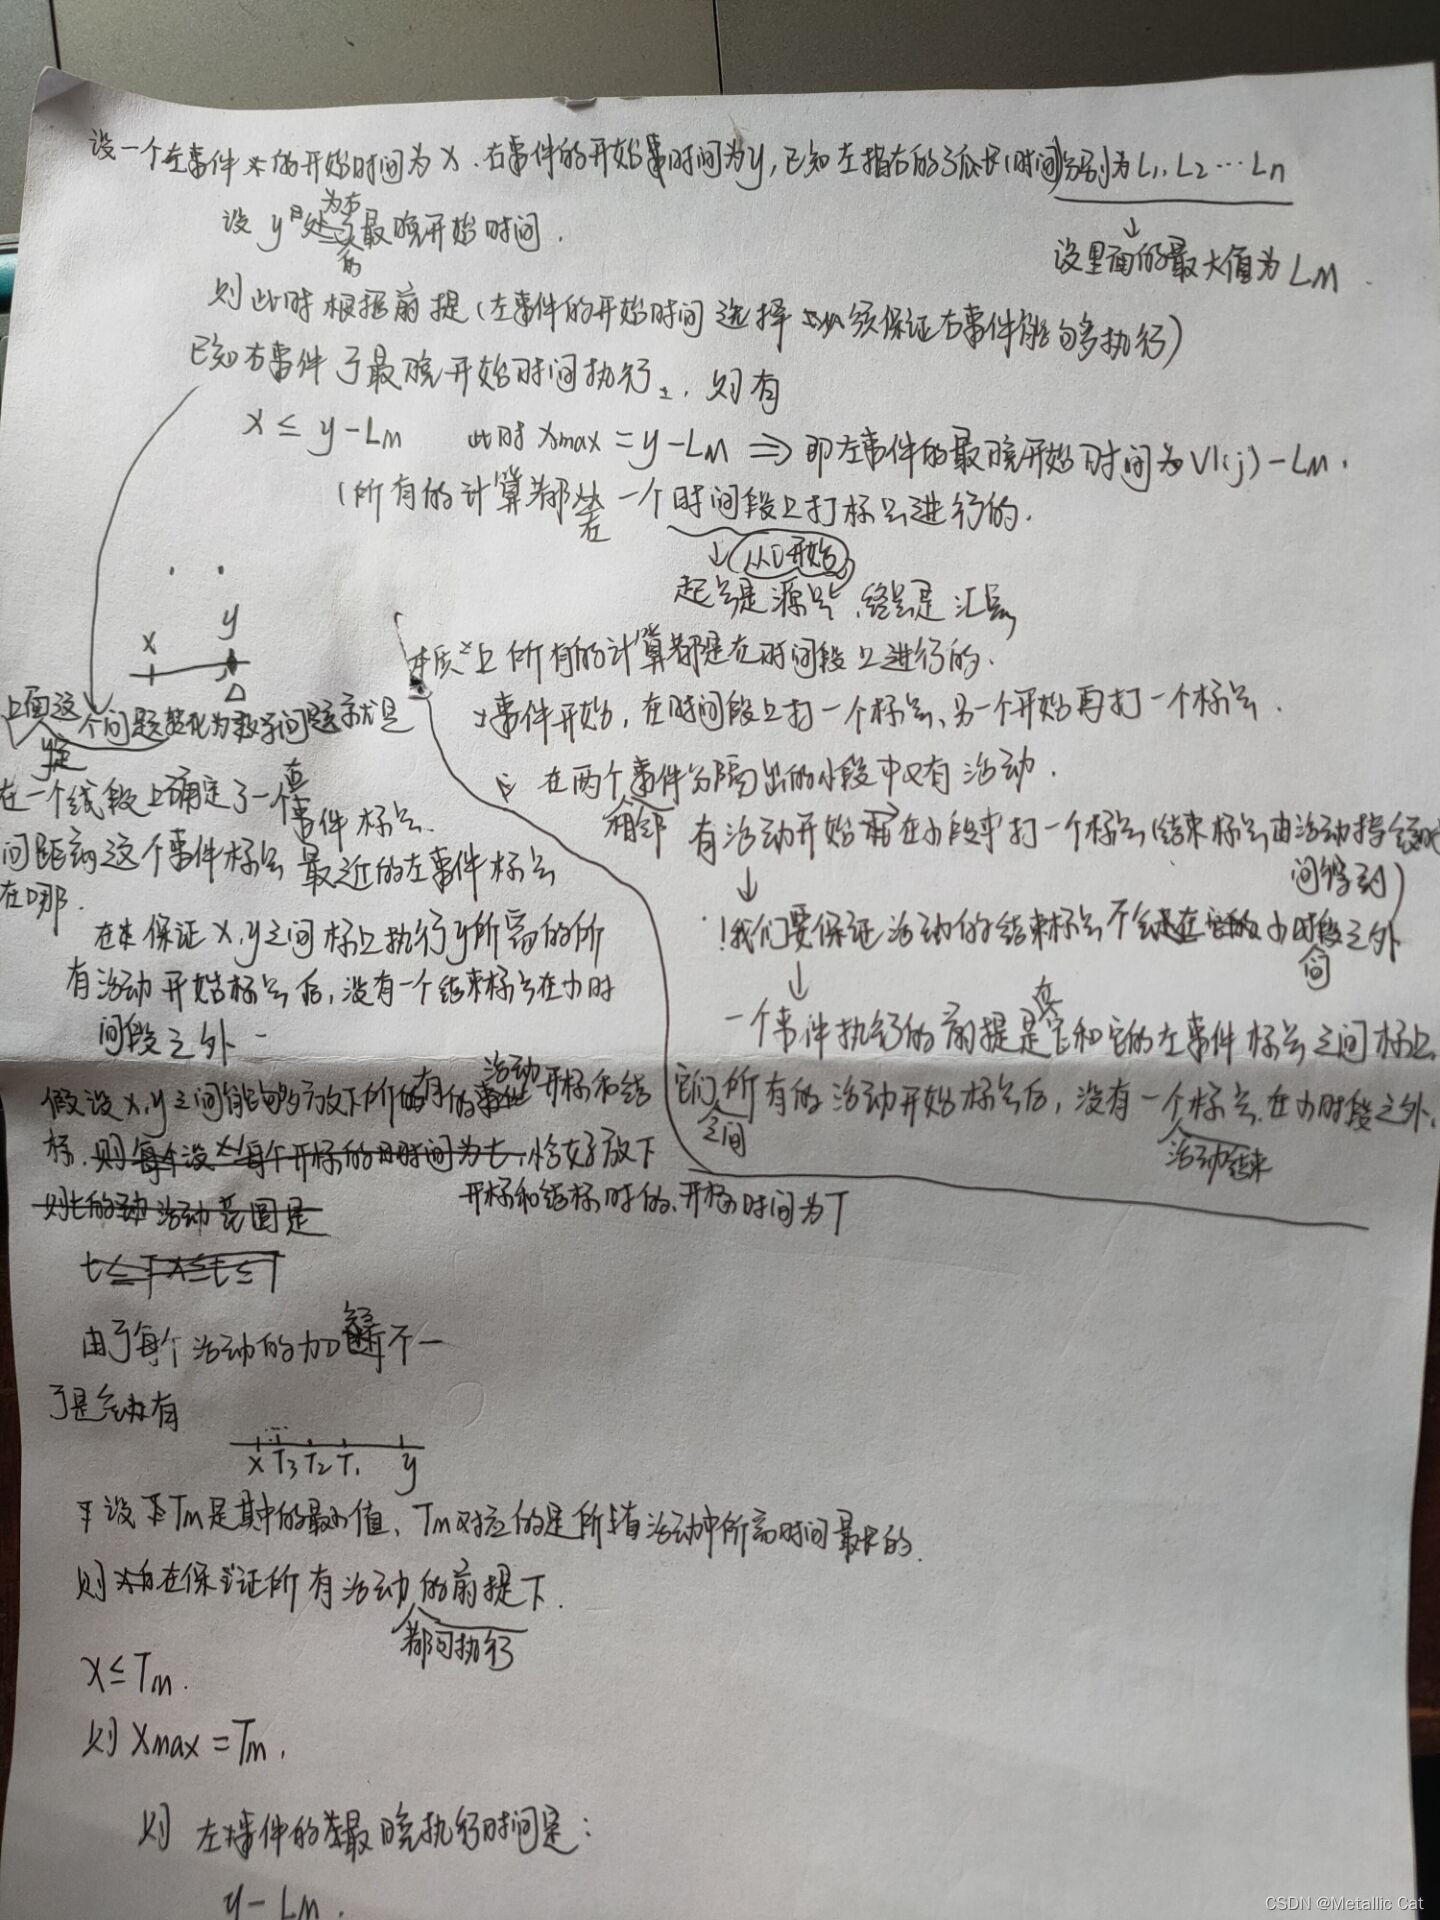 设一个左事件的开始时间为x.右事件的开始时间为y,已知左指右的弧长(时间)分别为L₁,L₂…Ln
设里面的最大值为LM.
设y为右最晚开始时间.
则此时根据前提(左事件的开始时间选择必须保证右事件能够多执行)
已知右事件了最晚开始时间执行,则有
x≤y-LM 此时xmax=y-LM⇒即左事件的最晚开始时间为Vl(j)-LM.
(所有的计算都在一个时间段上打标点进行的.
从0开始
起点是源点,终点是汇点
x y
本质上所有的计算都是在时间段上进行的.
事件开始,在时间段上打一个标点、另一个开始再打一个标点.
在两个相邻事件分隔出的小段中又有活动.
有活动开始再在小段中打一个标点(结束标点由活动持续时间得到)
↓
!我们要保证活动的结束标点不会在它的小时间段之外
↓
一个事件执行的前提是在它和它的左事件标点之间标上
它们之间所有的活动开始标点后,没有一个活动结束标点在小时段之外.
上面这个问题转化为数学问题就是
在一个线段上确定了一个右事件标点.
问距离这个事件标点最近的左事件标点
在哪.
在保证x,y之间标上执行y所需的所
有活动开始标点后,没有一个结束标点在小时
间段之外
假设x,y之间能够放下所有的活动开标和结
标.恰好放下
开标和结标时的、开标时间为T
由于每个活动的不一
于是有
x T₃ T₂ T₁ y
设Tm是其中的最小值、Tm对应的是所有活动中所需时间最长的.
则在保证所有活动都可执行的前提下.
x≤Tm.
则xmax=Tm.
则左事件的最晚执行时间是:
y-LM.
CSDN @Metallic Cat